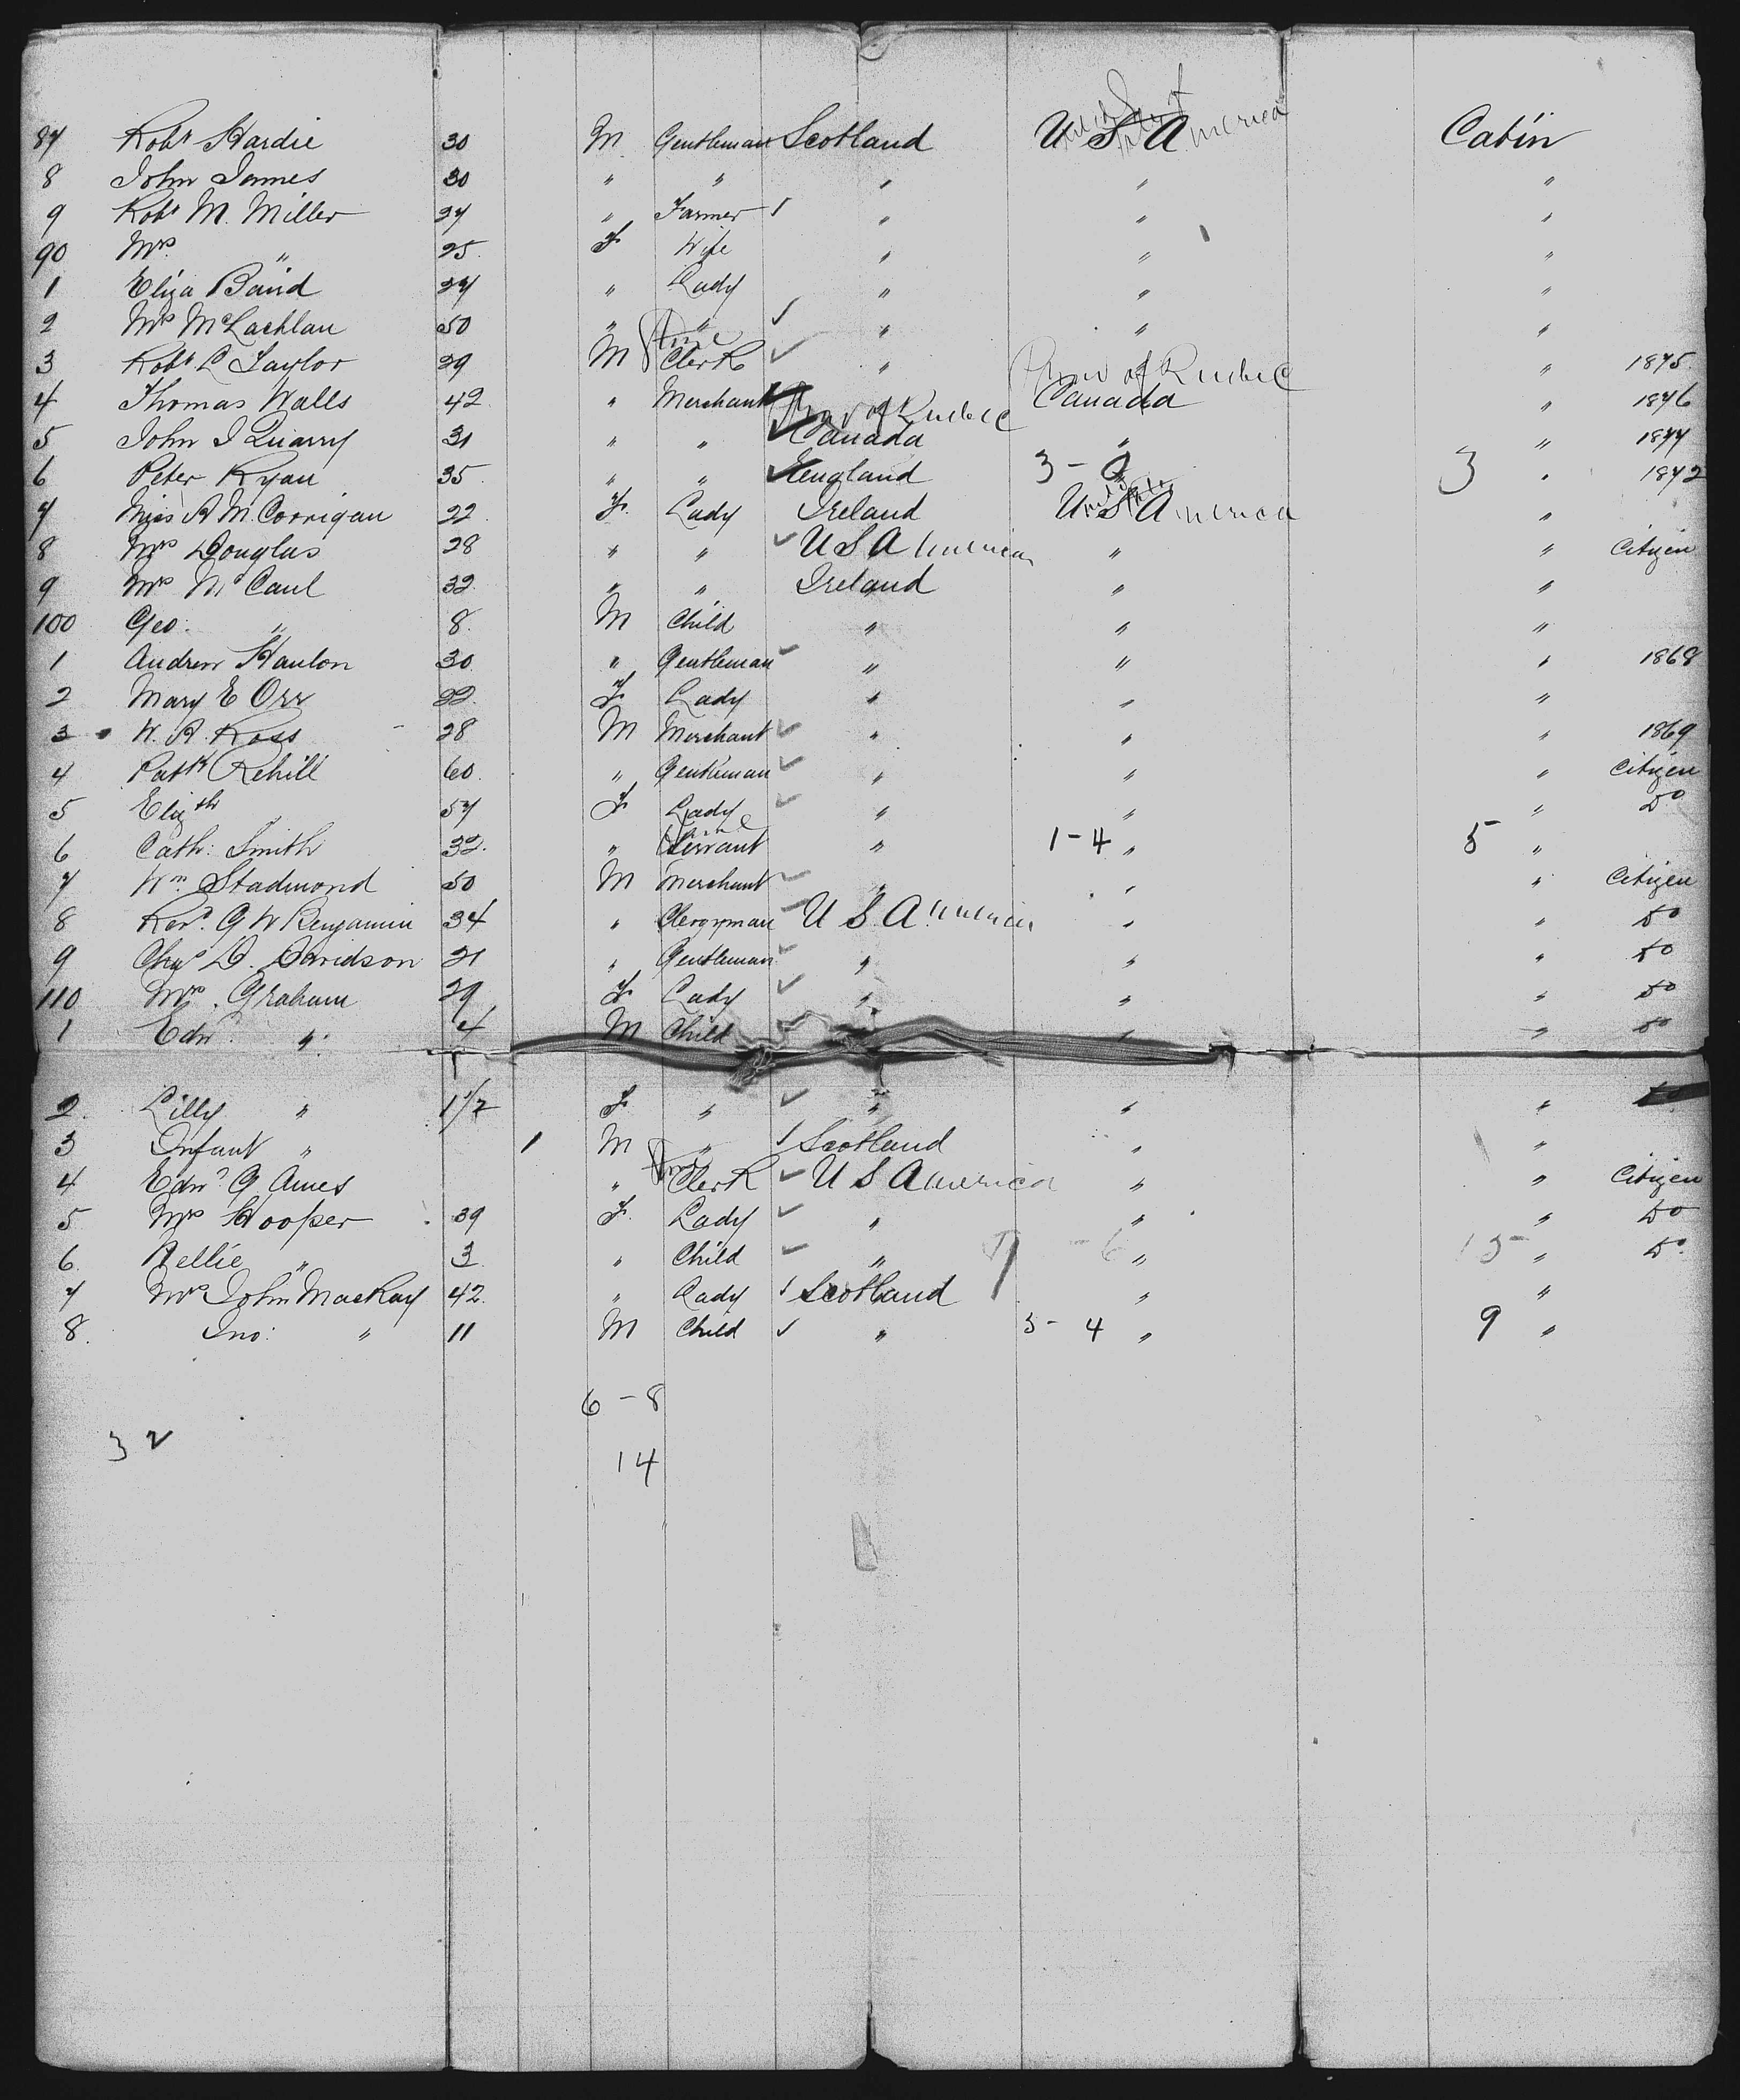 87 Robt Hardie 30 M Gentleman Scotland U S America Cabin
8 John Innes 30 " " " " "
9 Robt M. Miller 27 " Farmer " " "
90 Mrs " 25 F Wife " " "
1 Eliza Baird 27 " Lady " " "
2 Mrs McLachlan 50 " " " " "
3 Robt L Taylor 29 M Clerk " " 1875
4 Thomas Walls 42 " Merchant Prov of Quebec Canada " 1876
5 John I Quarry 31 " " Prov of Quebec Canada " " 1877
6 Peter Ryan 35 " " England 3 - 0 " 3 " 1872
7 Miss A M. Corrigan 22 F Lady Ireland U S America "
8 Mrs Douglas 28 " " U S America " " Citizen
9 Mrs McCaul 32 " " Ireland " "
100 Geo: " 8 M Child " " "
1 Andrew Hanlon 30 " Gentleman " " " 1868
2 Mary E Orr 22 F Lady " " "
3 W. A. Ross 28 M Merchant " " " 1869
4 Patk Rehill 60 " Gentleman " " " Citizen
5 Elizth 57 F Lady " " " Do
6 Cath: Smith 32 " Servant " 1 - 4 " 5 "
7 Wm Stadmond 50 M Merchant " " " Citizen
8 Revd G W Benjamin 34 " Clergyman U S America " " Do
9 Chas D. Davidson 21 " Gentleman " " " Do
110 Mrs Graham 29 F Lady " " " Do
1 Edw " 4 M Child " " Do
2 Lilly " F " " " "
3 Infant " 1 M " Scotland " "
4 Edwd G Ames " Clerk U S America " " Citizen
5 Mrs Hooper 39 F Lady " " " Do
6 Nellie " 3 " Child " - 6 " 15 " Do
7 Mrs John MacKay 42 " Lady Scotland " "
8 Jno: " 11 M Child " 5 - 4 " 9 "
6 - 8
32
14